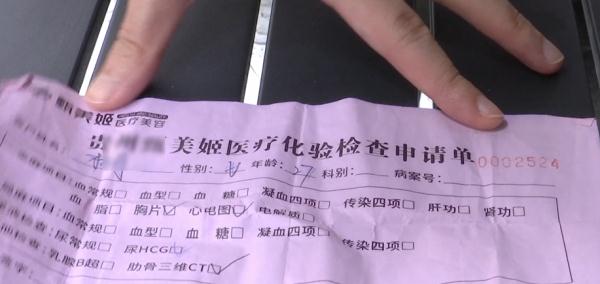 美姬医疗美容
美姬医疗化验检查申请单 0002524
性别: 女 年龄: 27 科别: 病案号:
血常规□ 血型□ 血糖□ 凝血四项□ 传染四项□ 肝功□ 肾功□
血脂□ 胸片☑ 心电图☑ 电解质□
尿常规□ 血型□ 血糖□ 凝血四项□ 传染四项□
尿HCG□
乳腺B超□ 肋骨三维CT☑